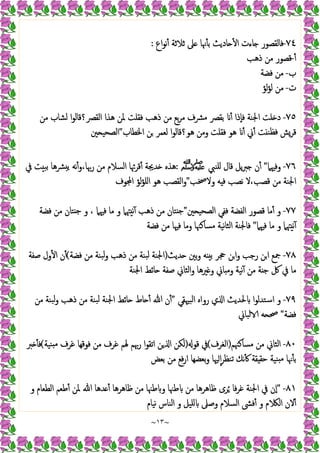 ٧٤-فالقصور جاءت الأحاديث بأنها على ثلاثة أنواع :
أ-قصور من ذهب
ب- من فضة
ت- من لؤلؤ
٧٥- دخلت الجنة فإذا أنا بقصر مشرف مربع من ذهب فقلت لمن هذا القصر؟قالوا لشاب من
قريش فظننت أني أنا هو فقلت ومن هو؟قالوا لعمر بن الخطاب"الصحيحين
٧٦- "وفيها" أن جبريل قال للنبي ﷺ :هذه خديجة أقرئها السلام من ربها،وأنه يبشرها ببيت في
الجنة من قصب،لا نصب فيه ولا صخب"والقصب هو اللؤلؤ المجوف
٧٧- و أما قصور الفضة ففي الصحيحين"جنتان من ذهب آنيتهما و ما فيهما ، و جنتان من فضة
آنيتهما و ما فيهما" فالجنة الثانية مساكنها وما فيها من فضة
٧٨- جمع ابن رجب وابن حجر بينه وبين حديث(الجنة لبنة من ذهب ولبنة من فضة)أن الأول صفة
ما في كل جنة من آنية ومباني وغيرها والثاني صفة حائط الجنة
٧٩- و استدلوا بالحديث الذي رواه البيهقي "أن الله أحاط حائط الجنة لبنة من ذهب ولبنة من
فضة" صححه الالباني
٨٠- الثاني من مساكنهم(الغرف)في قوله(لكن الذين اتقوا ربهم لهم غرف من فوقها غرف مبنية)فأخبر
بأنها مبنية حقيقة كأنك تنظر إليها وبعضها ارفع من بعض
٨١- "إن في الجنة غرفا يُرى ظاهرها من باطنها وباطنها من ظاهرها أعدها الله لمن أطعم الطعام و
ألان الكلام و أفشى السلام وصلى بالليل و الناس نيام
~١٣~